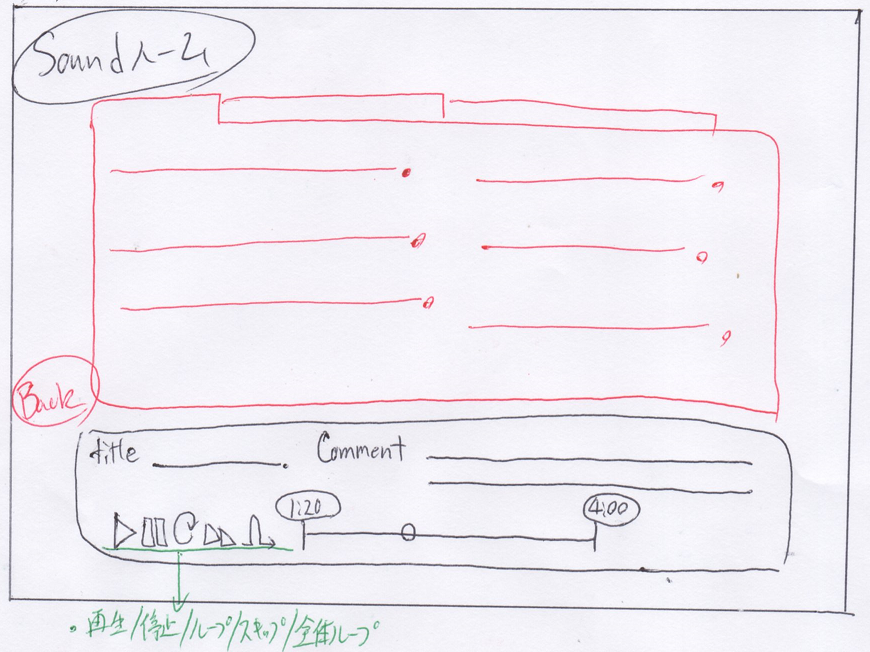 Soundルーム
Back
title
Comment
1:20
4:00
・再生/停止/ループ/スキップ/全体ループ